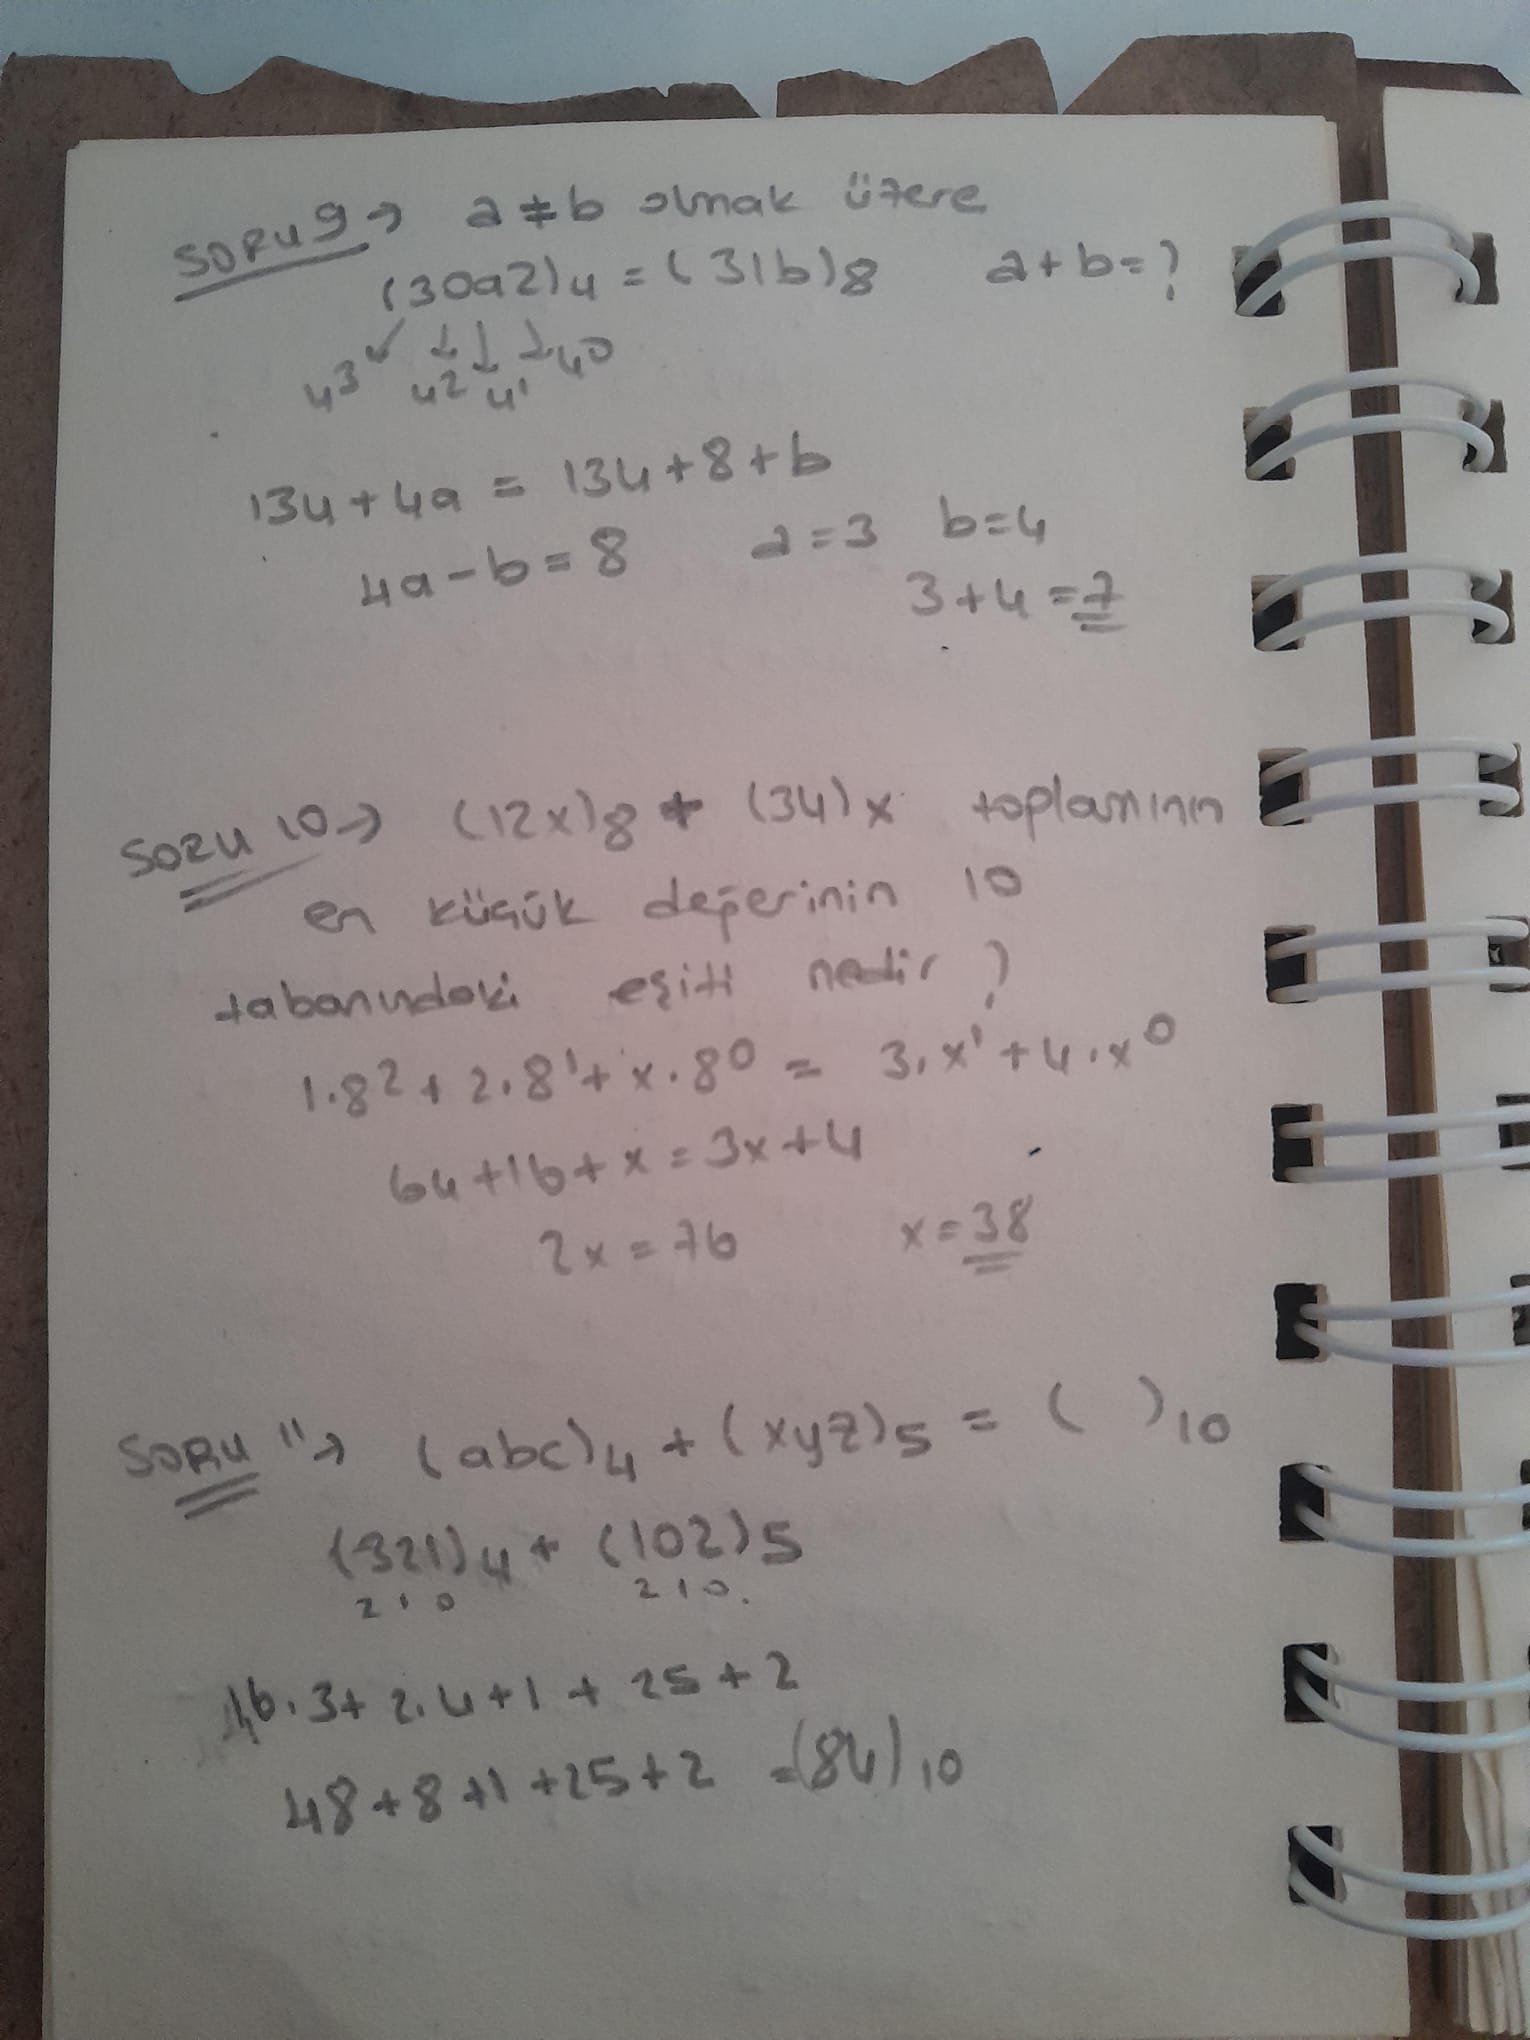 SORU 9 → a ≠ b olmak üzere
(30a2)4 = (31b)8 a + b = ?
4³ 4² 4¹ 4⁰
134 + 4a = 134 + 8 + b
4a - b = 8 a = 3 b = 4
3 + 4 = 7
SORU 10 → (12x)8 + (34)x toplamının
en küçük değerinin 10
tabanındaki eşiti nedir ?
1.8² + 2.8¹ + x.8⁰ = 3.x¹ + 4.x⁰
64 + 16 + x = 3x + 4
2x = 76 x = 38
SORU 11 → (abc)4 + (xyz)5 = ( )10
(321)4 + (102)5
2 1 0 2 1 0.
16.3 + 2.4 + 1 + 25 + 2
48 + 8 + 1 + 25 + 2 = (84)10